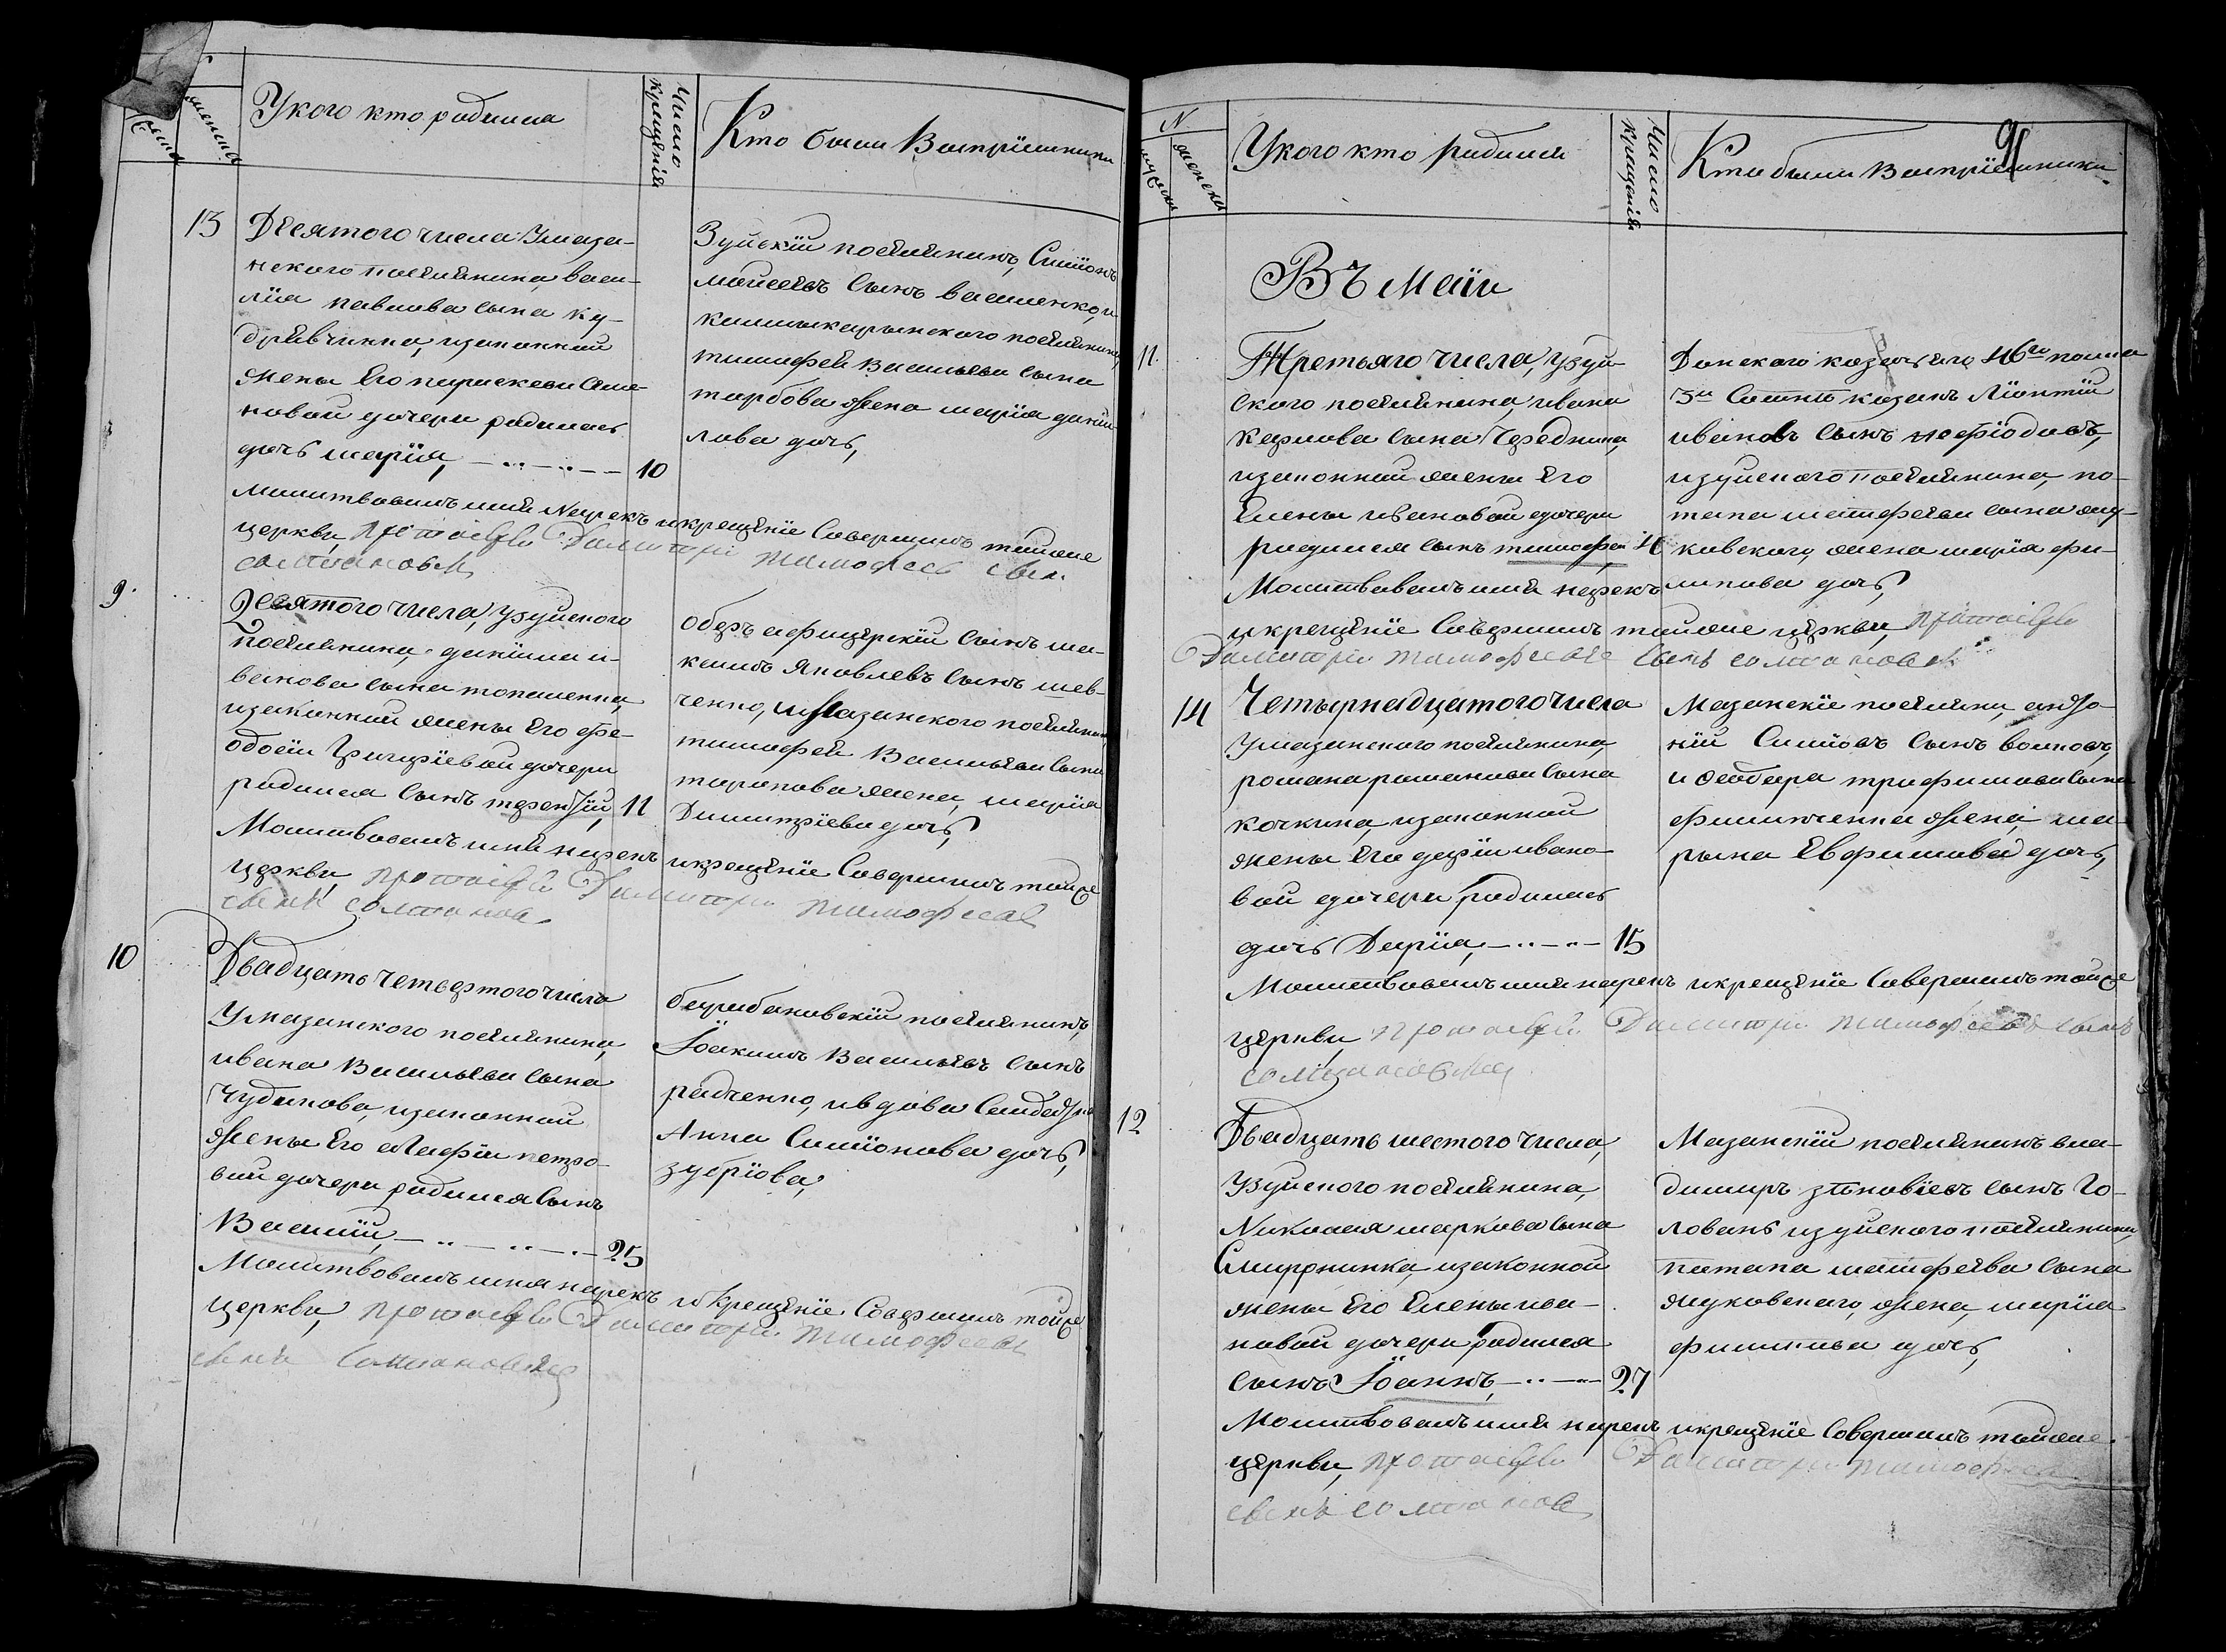 женска
Укого кто родился
Число
крещенія
Кто были Воспріемники
13
Десятого числа Умаза-
нского поселянина васи-
лія павлова сына ку-
дрявчинка, изаконной
жены Его параскеви Симе-
новой дочери родилась
дочь марія, 10
Зуйскій поселянинъ, Симіонъ
мойсеевъ сынъ василенко, и
тимофея Васильева сына
тарбова жена марія дании-
лова дочь,
Молитвовалъ имя Нарекъ икрещеніе Совершилъ тойже
церкви, протоіерей Димитрій тимофеевъ сынъ
9.
Десятого числа, узуйского
поселянина, данііла и-
ванова сына тополенка,
изаконной жены Его фе-
одосіи Григоріевой дочери
родился сынъ терентій, 11
Оберъ афицерскій сынъ ма-
ксимъ Яковлевъ сынъ шев-
ченко, имазанского поселянина,
тимофея Васильева сына
тарапова жена, марія
Димитріева дочь,
Молитвовалъ имя нарекъ икрещеніе Совершилъ тойже
церкви, протоіерей Димитрій тимофеевъ
сынъ
10
Двадцать четвертого числа
Умазанского поселянина,
ивана Васильева сына
Чудинова, изаконной
жены Его Агафіи петро-
вой дочери родился сынъ
Василій, 25
поселянинъ,
Іоакимъ Васильевъ сынъ
радченко, ивдова
Анна Симіонова дочь,
зубріова,
Молитвовалъ имя нарекъ и крещеніе Совершилъ тойже
церкви, протоіерей Димитрій тимофеевъ
сынъ
N
мужеска
женска
Укого кто родился
Число
крещенія
Кто были Воспріемники
91
Въ Маіи
11.
Третьяго числа, узуй-
ского поселянина, ивана
Карпова сына Чередника,
изаконной жены Его
Елены ивановой дочери
родился сынъ тимофей, 4
Донского козачьего 46го полка
3й Сотни козакъ Ліонтій
ивановъ сынъ нефіодовъ,
изуйского поселянина, по-
тапа матфеева сына жу-
ковского, жена марія фи-
липова дочь,
Молитвовалъ имя нарекъ
икрещеніе Совершилъ тойже церкви, протоіерей
Димитрій тимофеевъ сынъ
14
Четырнадцатого числа
Умазанского поселянина,
романа романова сына
кочкина, изаконной
жены Его даріи ивано-
вой дочери, родилась
дочь Дарія, 15
Мазанскіе поселяни,
Симіовъ сынъ волковъ,
и Феодора трифимова сына
жена, ма-
рына Евфимова дочь,
Молитвовалъ имя нарекъ икрещеніе Совершилъ тойже
церкви, протоіерей Димитрій тимофеевъ сынъ
12
Двадцать шестого числа,
Узуйского поселянина,
Николая маркова сына
Смирнинка, изаконной
жены Его Елены ива-
новой дочери родился
сынъ Іоаннъ, 27
Мазанскій поселянинъ вла-
димиръ зѣновіевъ сынъ Го-
ловань изуйского поселянина,
патапа матфеева сына
жуковского, жена, марія
филипова дочь,
Молитвовалъ имя нарекъ икрещеніе Совершилъ тойже
церкви, протоіерей Димитрій тимофеевъ
сынъ